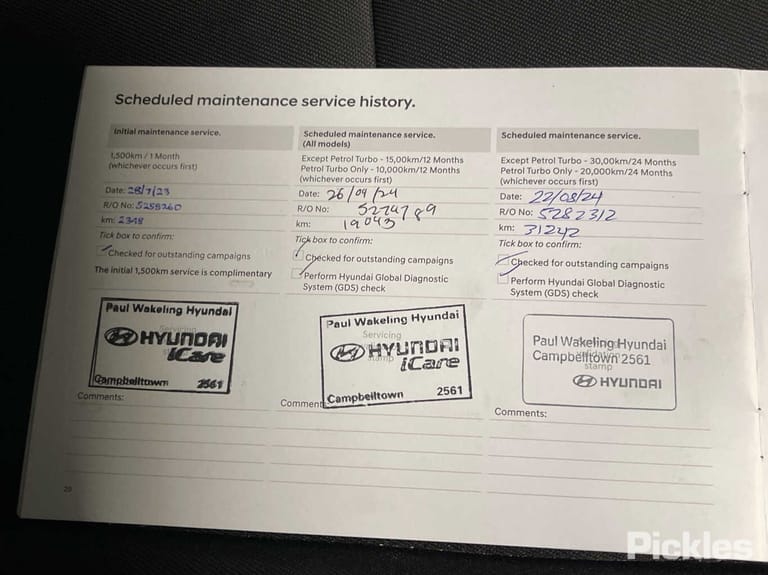 Scheduled maintenance service history.
Initial maintenance service.
1,500km / 1 Month
(whichever occurs first)
Date: 28/7/23
R/O No: 5258260
km: 2348
Tick box to confirm:
Checked for outstanding campaigns
The initial 1,500km service is complimentary
Paul Wakeling Hyundai
HYUNDAI
iCare
Campbelltown 2561
Comments:
Scheduled maintenance service.
(All models)
Except Petrol Turbo - 15,00km/12 Months
Petrol Turbo Only - 10,000km/12 Months
(whichever occurs first)
Date: 26/04/24
R/O No: 5274789
km: 19043
Tick box to confirm:
Checked for outstanding campaigns
Perform Hyundai Global Diagnostic
System (GDS) check
Paul Wakeling Hyundai
Servicing
stamp
HYUNDAI
iCare
Campbelltown 2561
Comment
Scheduled maintenance service.
Except Petrol Turbo - 30,00km/24 Months
Petrol Turbo Only - 20,000km/24 Months
(whichever occurs first)
Date: 22/08/24
R/O No: 5282312
km: 31242
Tick box to confirm:
Checked for outstanding campaigns
Perform Hyundai Global Diagnostic
System (GDS) check
Paul Wakeling Hyundai
Campbelltown 2561
stamp
HYUNDAI
Comments:
Pickles